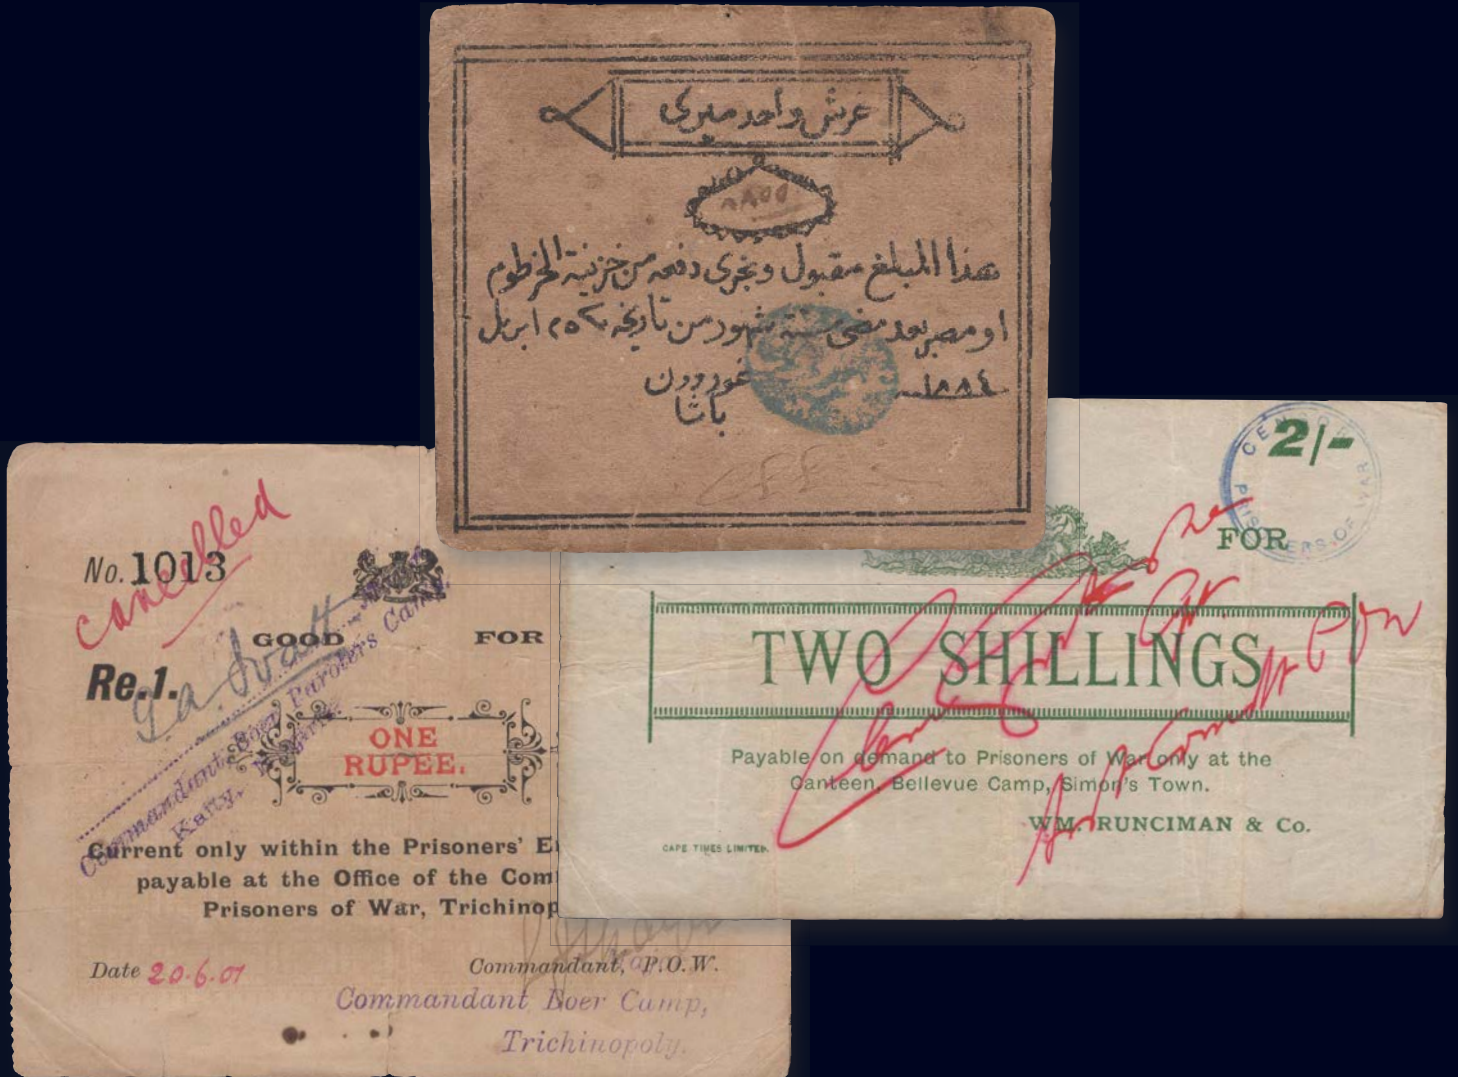 غرش واحد ميرى
هذا المبلغ مقبول ويجرى دفعه من خزينة الخرطوم
او مصر بعد مضى ستة شهور من تاريخه ٢٥ ابريل
١٨٨٤
غوردون
باشا
cancelled
No. 1013
GOOD FOR
Re.1.
ONE
RUPEE.
Commandant, Boer Parolers Camp,
Kaity,
Current only within the Prisoners'
payable at the Office of the
Prisoners of War,
Date 20.6.01
Commandant, P.O.W.
Commandant Boer Camp,
Trichinopoly.
2/-
CENSOR
PRISONERS OF WAR
FOR
TWO SHILLINGS
Payable on demand to Prisoners of War only at the
Canteen, Bellevue Camp, Simon's Town.
WM. RUNCIMAN & Co.
CAPE TIMES LIMITED.